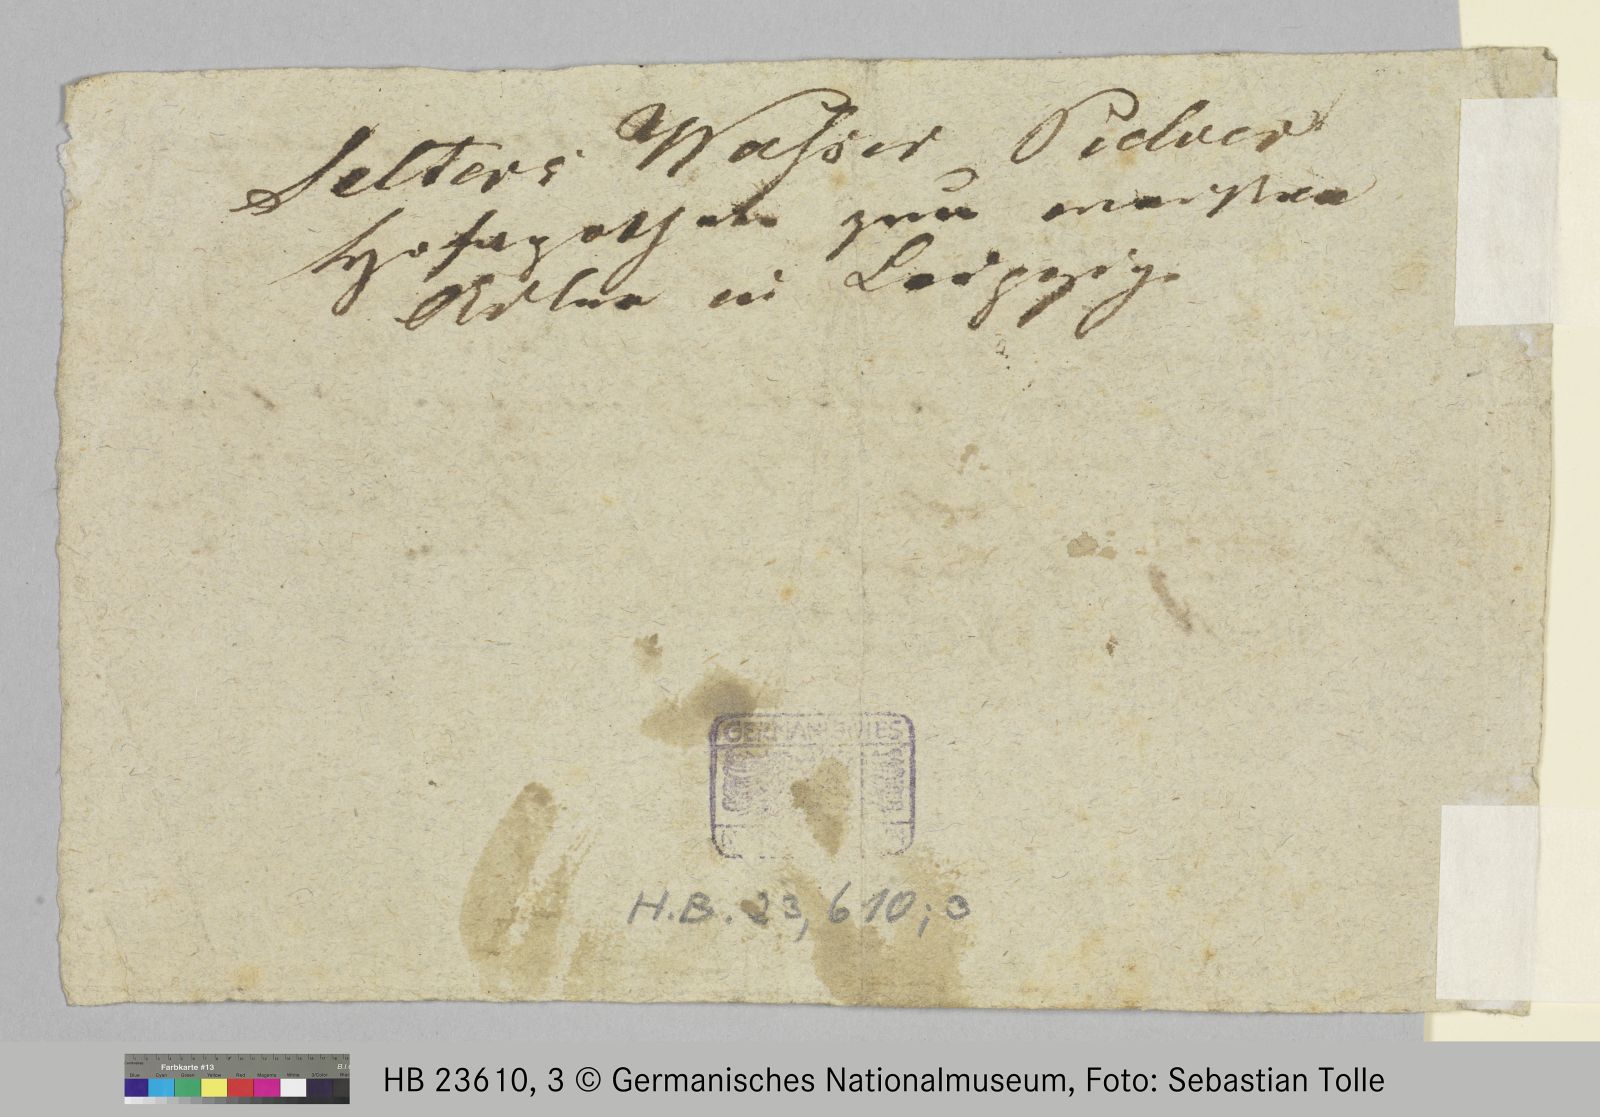 Selters Wasser Pulver
Hofapotheke zum weißen
Adler in Leipzig.
GERMANISCHES
H.B. 23,610; 3
Farbkarte #13
B.I.G.
Blue Cyan Green Yellow Red Magenta White 3/Color Black
HB 23610, 3 © Germanisches Nationalmuseum, Foto: Sebastian Tolle